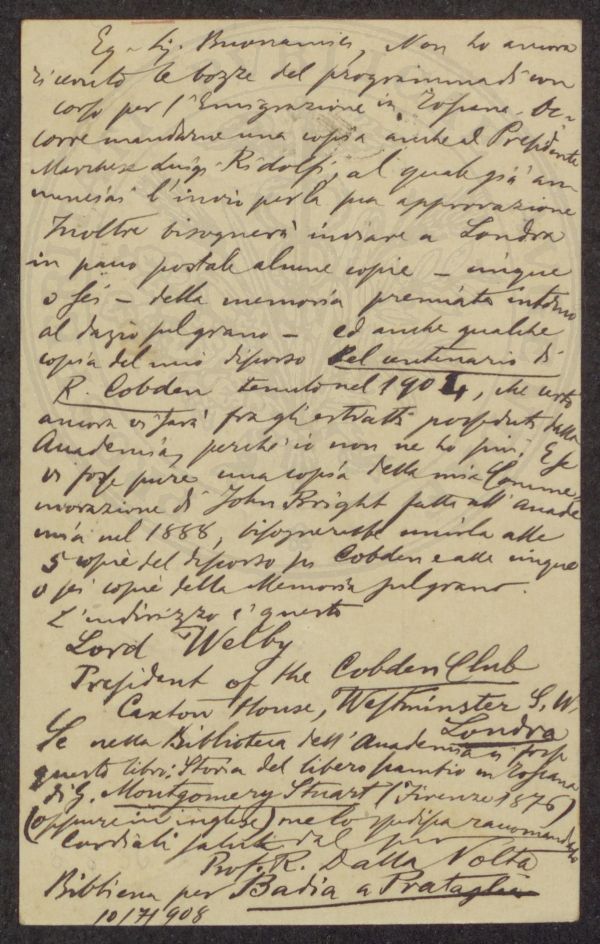 Eg. Sig. Buonamici, Non ho ancora
ricevuto le bozze del programma di con
corso per l'Emigrazione in Toscana. Oc-
corre mandarne una copia anche al Presidente
Marchese Luigi Ridolfi, al quale già an
nunziai l'invio per la sua approvazione
Inoltre bisognerà inviare a Londra
in pacco postale alcune copie – cinque
o sei – della memoria premiata intorno
al dazio sul grano – ed anche qualche
copia del mio discorso nel centenario di
R. Cobden tenuto nel 1904, che certo
ancora vi sarà fra gli estratti posseduti dalla
Accademia, perché io non ne ho più. E se
vi fosse pure una copia della mia Comme-
morazione di John Bright fatta all'Accade
mia nel 1888, bisognerebbe unirla alle
5 copie del discorso su Cobden e alle cinque
o sei copie della Memoria sul grano.
L'indirizzo è questo
Lord Welby
President of the Cobden Club
Caxton House, Westminster S. W.
Londra
Se nella Biblioteca dell'Accademia vi fosse
questo libro: Storia del libero scambio in Toscana
di G. Montgomery Stuart (Firenze 1876)
(oppure in inglese) me lo spedisca raccomandato
Cordiali saluti dal suo
Prof. R. Dalla Volta
Bibbiena per Badia a Prataglia
10/7/908